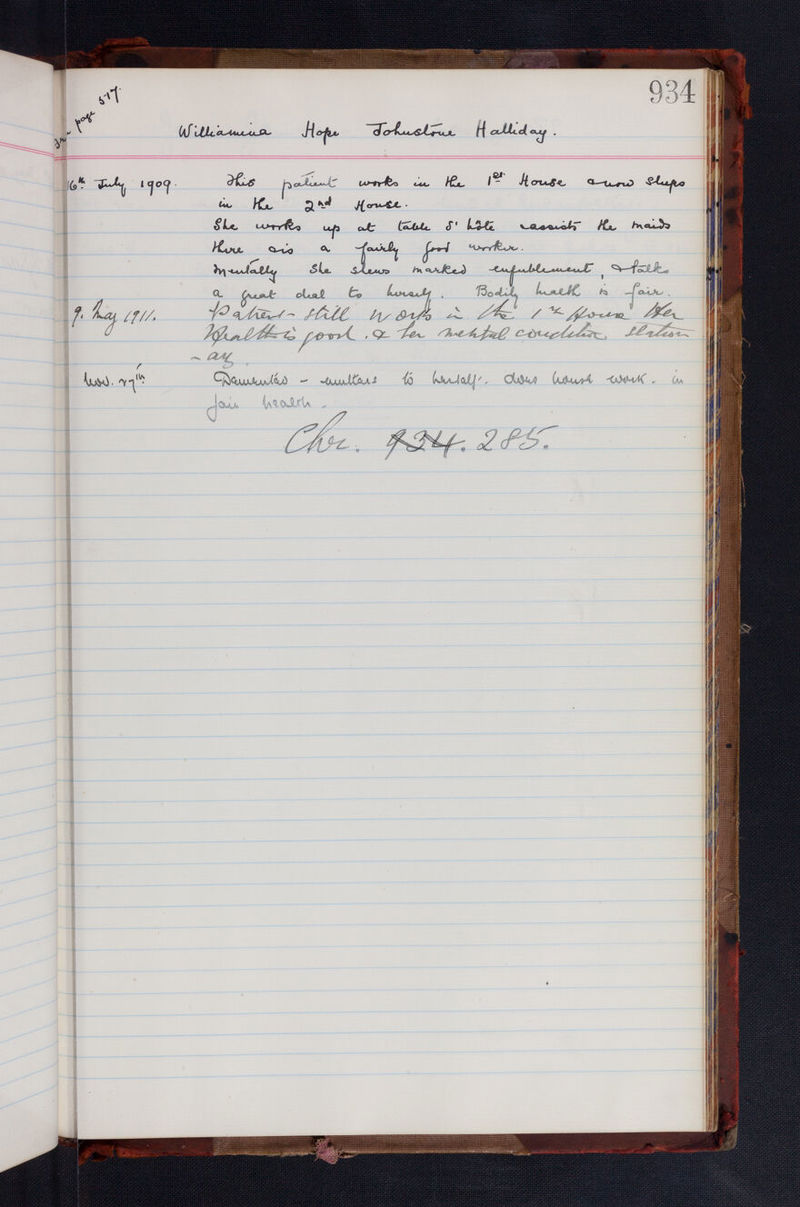 934
page 517.
Williamina Hope Johnstone Halliday.
16th July 1909. This patient works in the 1st House & now sleeps
in the 2nd House.
She works up at table d'hôte & assists the maids
there & is a fairly good worker.
Mentally she shews marked enfeeblement, & talks
a great deal to herself. Bodily health is fair.
9. May 1911. Patient still works in the 1st House Her
Health is good. & her mental condition station
-ary
Nov. 27th Demented - mutters to herself. does house work. in
fair health.
Chr. 934. 285.